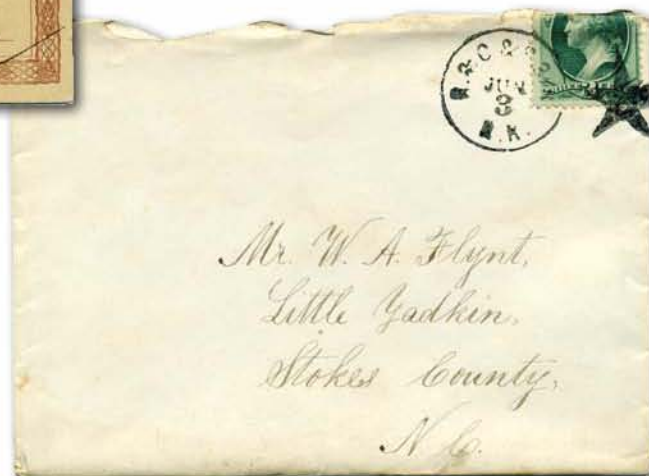 JUN
3
Mr. W. A. Flynt,
Little Yadkin,
Stokes County,
N. Co.